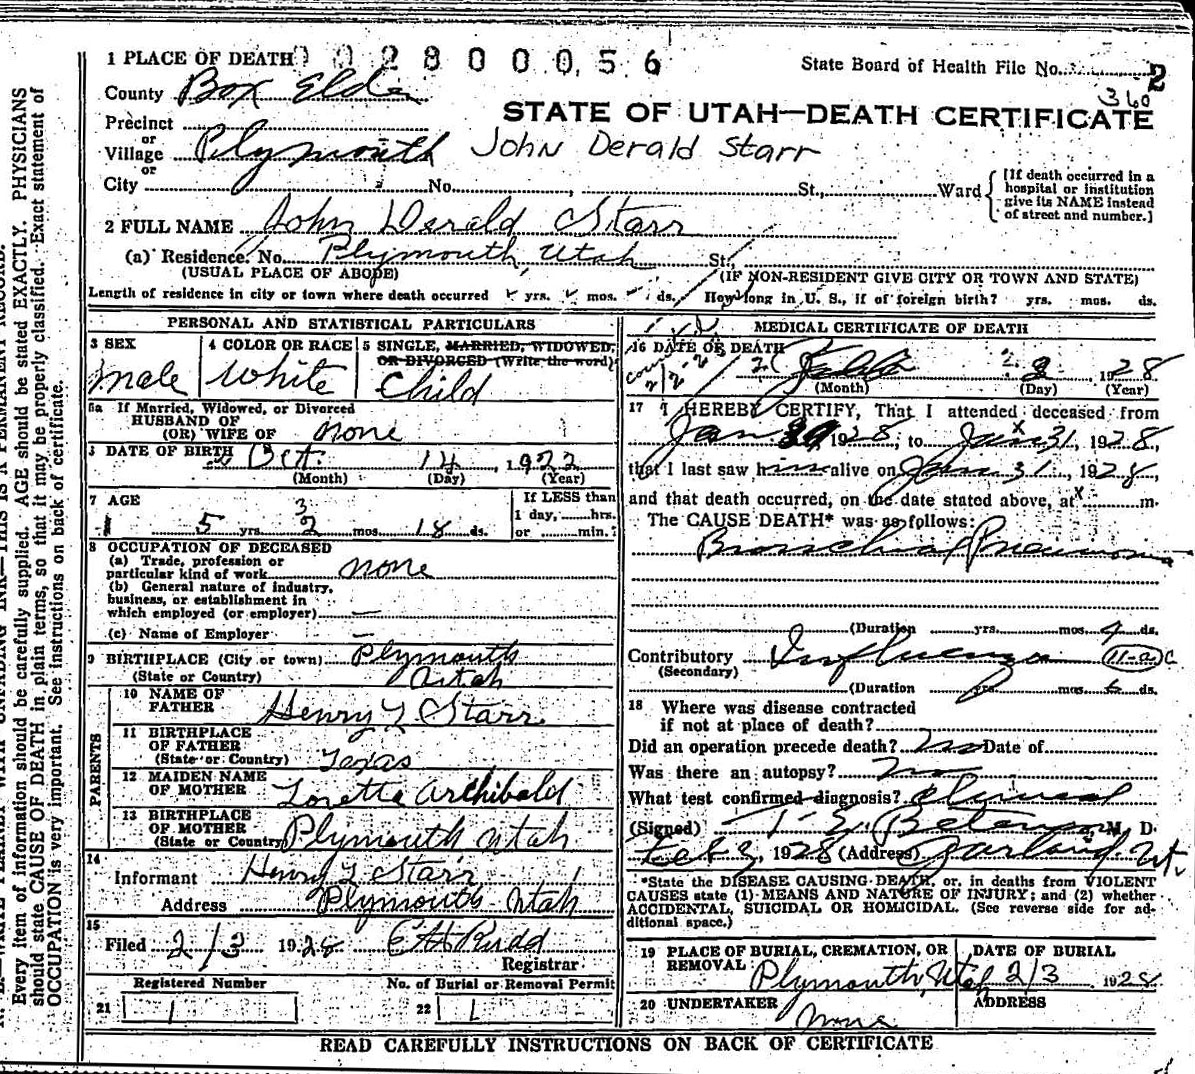 1 PLACE OF DEATH 2800056 State Board of Health File No. 2
360
County Box Elder
STATE OF UTAH—DEATH CERTIFICATE
Precinct
or
Village Plymouth John Derald Starr
or
City No. St., Ward
[If death occurred in a
hospital or institution
give its NAME instead
of street and number.]
2 FULL NAME John Derald Starr
(a) Residence. No. Plymouth, Utah St.,
(USUAL PLACE OF ABODE) (IF NON-RESIDENT GIVE CITY OR TOWN AND STATE)
Length of residence in city or town where death occurred yrs. mos. ds. How long in U. S., if of foreign birth? yrs. mos. ds.
PERSONAL AND STATISTICAL PARTICULARS
3 SEX 4 COLOR OR RACE 5 SINGLE, MARRIED, WIDOWED,
OR DIVORCED (Write the word)
Male White Child
5a If Married, Widowed, or Divorced
HUSBAND OF
(OR) WIFE OF none
DATE OF BIRTH Oct. 14, 1922
(Month) (Day) (Year)
7 AGE If LESS than
1 day, hrs.
5 yrs. 3 2 mos. 18 ds. or min.?
8 OCCUPATION OF DECEASED
(a) Trade, profession or
particular kind of work none
(b) General nature of industry,
business, or establishment in
which employed (or employer)
(c) Name of Employer
9 BIRTHPLACE (City or town) Plymouth
(State or Country) Utah
PARENTS
10 NAME OF
FATHER Henry L Starr
11 BIRTHPLACE
OF FATHER
(State or Country) Texas
12 MAIDEN NAME
OF MOTHER Loretta Archibald
13 BIRTHPLACE
OF MOTHER
(State or Country) Plymouth Utah
14
Informant Henry L Starr
Address Plymouth Utah
15
Filed 2/3 1928 E H Rudd
Registrar
Registered Number No. of Burial or Removal Permit
21 1 22 1
MEDICAL CERTIFICATE OF DEATH
16 DATE OF DEATH
Feb 2 1928
(Month) (Day) (Year)
17 I HEREBY CERTIFY, That I attended deceased from
Jan 29 1928, to Jan 31, 1928,
that I last saw him alive on Jan 31, 1928,
and that death occurred, on the date stated above, at m.
The CAUSE DEATH* was as follows:
Bronchial Pneumonia
(Duration yrs. mos. 4 ds.
Contributory Influenza 11-a C
(Secondary)
(Duration yrs. mos. 6 ds.
18 Where was disease contracted
if not at place of death?
Did an operation precede death? No Date of
Was there an autopsy? No
What test confirmed diagnosis? Clinical
(Signed) M. D.
Feb 3, 1928 (Address) Garland, Ut.
*State the DISEASE CAUSING DEATH, or, in deaths from VIOLENT
CAUSES state (1) MEANS AND NATURE OF INJURY; and (2) whether
ACCIDENTAL, SUICIDAL OR HOMICIDAL. (See reverse side for ad-
ditional space.)
19 PLACE OF BURIAL, CREMATION, OR
REMOVAL Plymouth, Utah
DATE OF BURIAL
2/3 1928
20 UNDERTAKER ADDRESS
None
READ CAREFULLY INSTRUCTIONS ON BACK OF CERTIFICATE
Every item of information should be carefully supplied. AGE should be stated EXACTLY. PHYSICIANS
should state CAUSE OF DEATH in plain terms, so that it may be properly classified. Exact statement of
OCCUPATION is very important. See instructions on back of certificate.